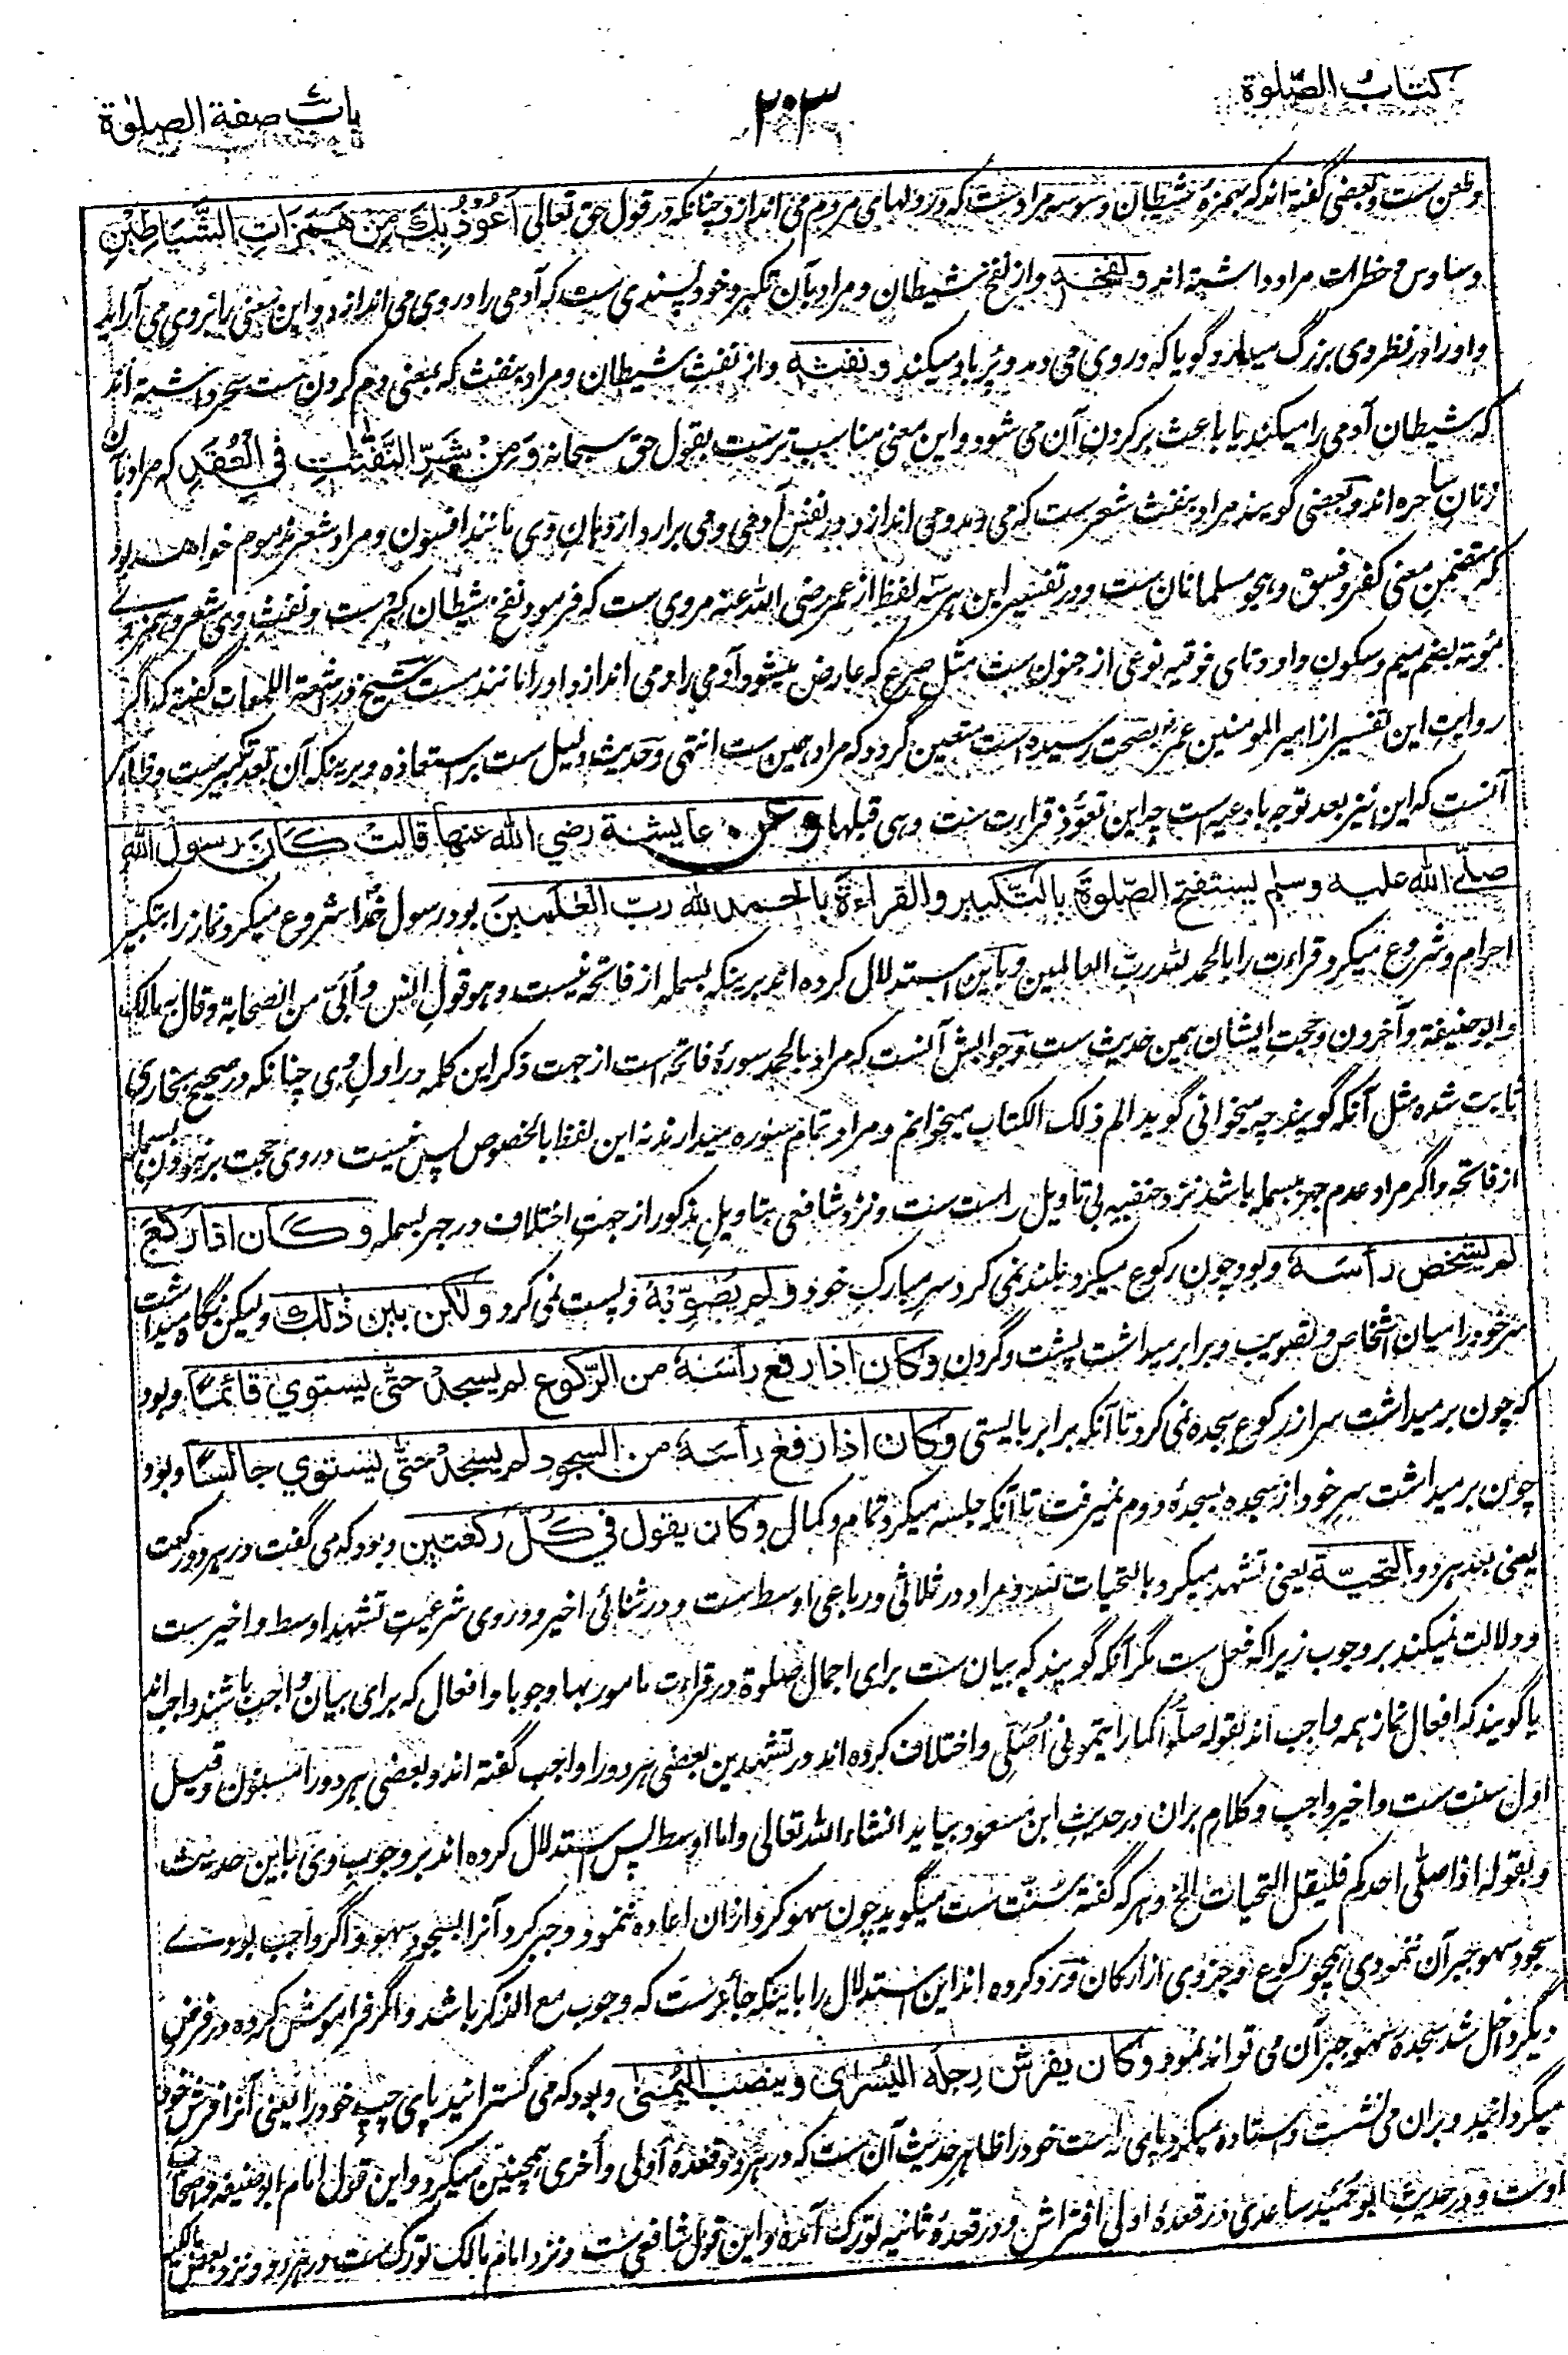 كتاب الصّلوة
۲۰۳
باب صفة الصلوة
وطعن ست وبعضی گفته اند که بهمزهٔ شیطان وسوسه مراد ست که در دلهای مردم می اندازد چنانکه در قول حق تعالی اَعُوْذُ بِكَ مِنْ هَمَزَاتِ الشَّيَاطِيْنِ
وساوس و خطرات مراد داشته اند ونفخه واز نفخ شیطان و مراد بآن تکبر و خود پسندی ست که آدمی را در وی می اندازد و این معنی را بروی می آراید
و او را در نظر وی بزرگ میسازد گویا که در وی می دمد و پر باد میکند ونفثه واز نفث شیطان و مراد بنفث که بمعنی دم کردن ست سحر داشته اند
که شیطان آدمی را میکند یا باعث بر کردن آن می شود و این معنی مناسب ترست بقول حق سبحانه وَمِنْ شَرِّ النَّفّٰثٰتِ فِي الْعُقَدِ که مراد بآن
زنان ساحره اند و بعضی گویند مراد بنفث شعرست که می دمد و می اندازد در نفس آدمی و می برارد از دهان وی مانند افسون و مراد شعر مذموم خواهد بود
که متضمن معنی کفر و فسق و هجو مسلمانان ست و در تفسیر این هر سه لفظ از عمر رضی الله عنه مروی ست که فرمود نفخ شیطان کبرست و نفث وی شعر و همز وے
موته بضم میم و سکون واو و تای فوقیه نوعی از جنون ست مثل صرع که عارض میشود آدمی را و می اندازد او را مانند مست شیخ در اشعة اللمعات گفته که اگر
روایت این تفسیر از امیر المومنین عمر بصحت رسیده است متعین گردد که مراد همین ست انتهی و حدیث دلیل ست بر استعاذه و برینکه آن بعد تکبیرست و ظاهر
آنست که این نیز بعد توجه بادعیه است چه این تعوّذ قراءت ست وهی قبلها وعن عايشة رضي الله عنها قالت كان رسول الله
صلّى الله عليه وسلم يستفتح الصّلوة بالتّكبير والقراءة بالحمد لله ربّ العلمين بود رسول خدا شروع میکرد نماز را بتکبیر
احرام و شروع میکرد قراءت را بالحمد لله رب العالمین و باین استدلال کرده اند برینکه بسمله از فاتحه نیست و هو قول انس و اُبَیّ من الصحابة و قال به مالک
و ابو حنیفة و آخرون و حجت ایشان همین حدیث ست و جوابش آنست که مراد بالحمد سورهٔ فاتحه است از جهت ذکر این کلمه در اول وی چنانکه در صحیح بخاری
ثابت شده مثل آنکه گویند چه میخوانی گوید الم ذلک الکتاب میخوانم و مراد تمام سوره میدارند نه این لفظ بالخصوص پس نیست در وی حجت بر نبودن بسمله
از فاتحه و اگر مراد عدم جهر ببسمله باشد نزد حنفیه بی تاویل راست ست و نزد شافعی بتاویل مذکور از جهت اختلاف در جهر بسمله وكان اذا ركع
لم يشخص رأسه و بود چون رکوع میکرد بلند نمی کرد سر مبارک خود ولم يصوّبه و پست نمی کرد ولكن بين ذلك ولیکن نگاه میداشت
سر خود را میان اشخاص و تصویب و برابر میداشت پشت و گردن وكان اذا رفع رأسه من الرّكوع لم يسجد حتّى يستوي قائمًا و بود
که چون برمیداشت سر از رکوع سجده نمی کرد تا آنکه برابر بایستی وكان اذا رفع رأسه من السجود لم يسجد حتّى يستوي جالسًا و بود
چون برمیداشت سر خود از سجده بسجدهٔ دوم نمیرفت تا آنکه جلسه میکرد تمام و کمال وكان يقول في كلّ ركعتين و بود که می گفت در هر دو رکعت
یعنی بعد هر دو التحيّة یعنی تشهد میکرد بالتحیات لله و مراد در ثلاثی و رباعی اوسط ست و در ثنائی اخیر و در وی شرعیت تشهد اوسط و اخیر ست
و دلالت نمیکند بر وجوب زیرا که فعل ست مگر آنکه گویند که بیان ست برای اجمال صلوة در قراءت مامور بها وجوبا و افعال که برای بیان واجب باشند واجب اند
یا گویند که افعال نماز همه واجب اند لقوله صلّوا کما رایتمونی اُصلّی و اختلاف کرده اند در تشهدین بعضی هر دو را واجب گفته اند و بعضی هر دو را مسنون وقیل
اول سنت ست و اخیر واجب و کلام بران در حدیث ابن مسعود بیاید انشاء الله تعالی و اما اوسط پس استدلال کرده اند بر وجوب وی باین حدیث
و بقوله اذا صلّی احدکم فلیقل التحیات الخ و هر که گفته سنّت ست میگوید چون سهو کرد ازان اعاده ننمود و جبر کرد آنرا بسجود سهو و اگر واجب بودے
سجود سهو جبر آن ننمودی همچو رکوع و جزوی از ارکان و رد کرده اند این استدلال را باینکه جائز ست که وجوب مع الذکر باشد و اگر فراموش کرده در فرض
دیگر داخل شد سجدهٔ سهو جبر آن می تواند نمود وكان يفرش رجله اليسرى وينصب اليمنى و بود که می گسترانید پای چپ خود را یعنی آنرا فرش خود
میگردانید و بران می نشست و استاده میکرد پای راست خود را ظاهر حدیث آن ست که در هر دو قعدهٔ اُولی و اُخری همچنین میکرد و این قول امام ابو حنیفه و اصحاب
اوست و در حدیث ابو حُمَید ساعدی در قعدهٔ اولی افتراش و در قعدهٔ ثانیه تورک آمده و این قول شافعی ست و نزد امام مالک تورک ست در هر دو و نزد بعض مالکیه